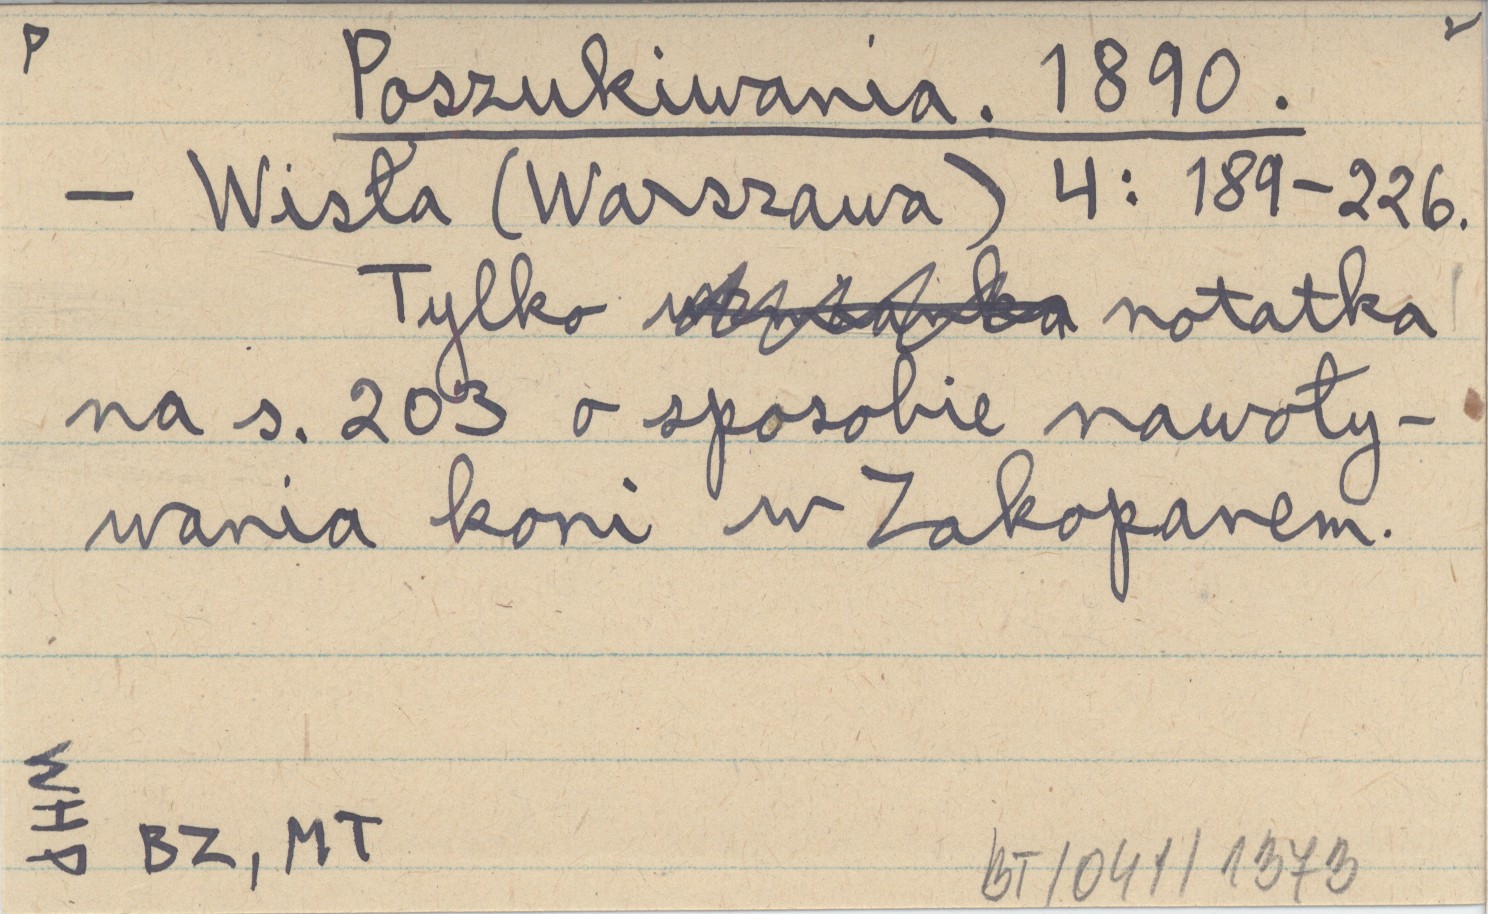 P
Poszukiwania. 1890.
— Wisła (Warszawa) 4: 189-226.
Tylko wzmianka notatka
na s. 203 o sposobie nawoły-
wania koni w Zakopanem.
WHP
BZ, MT
BT/041/1373